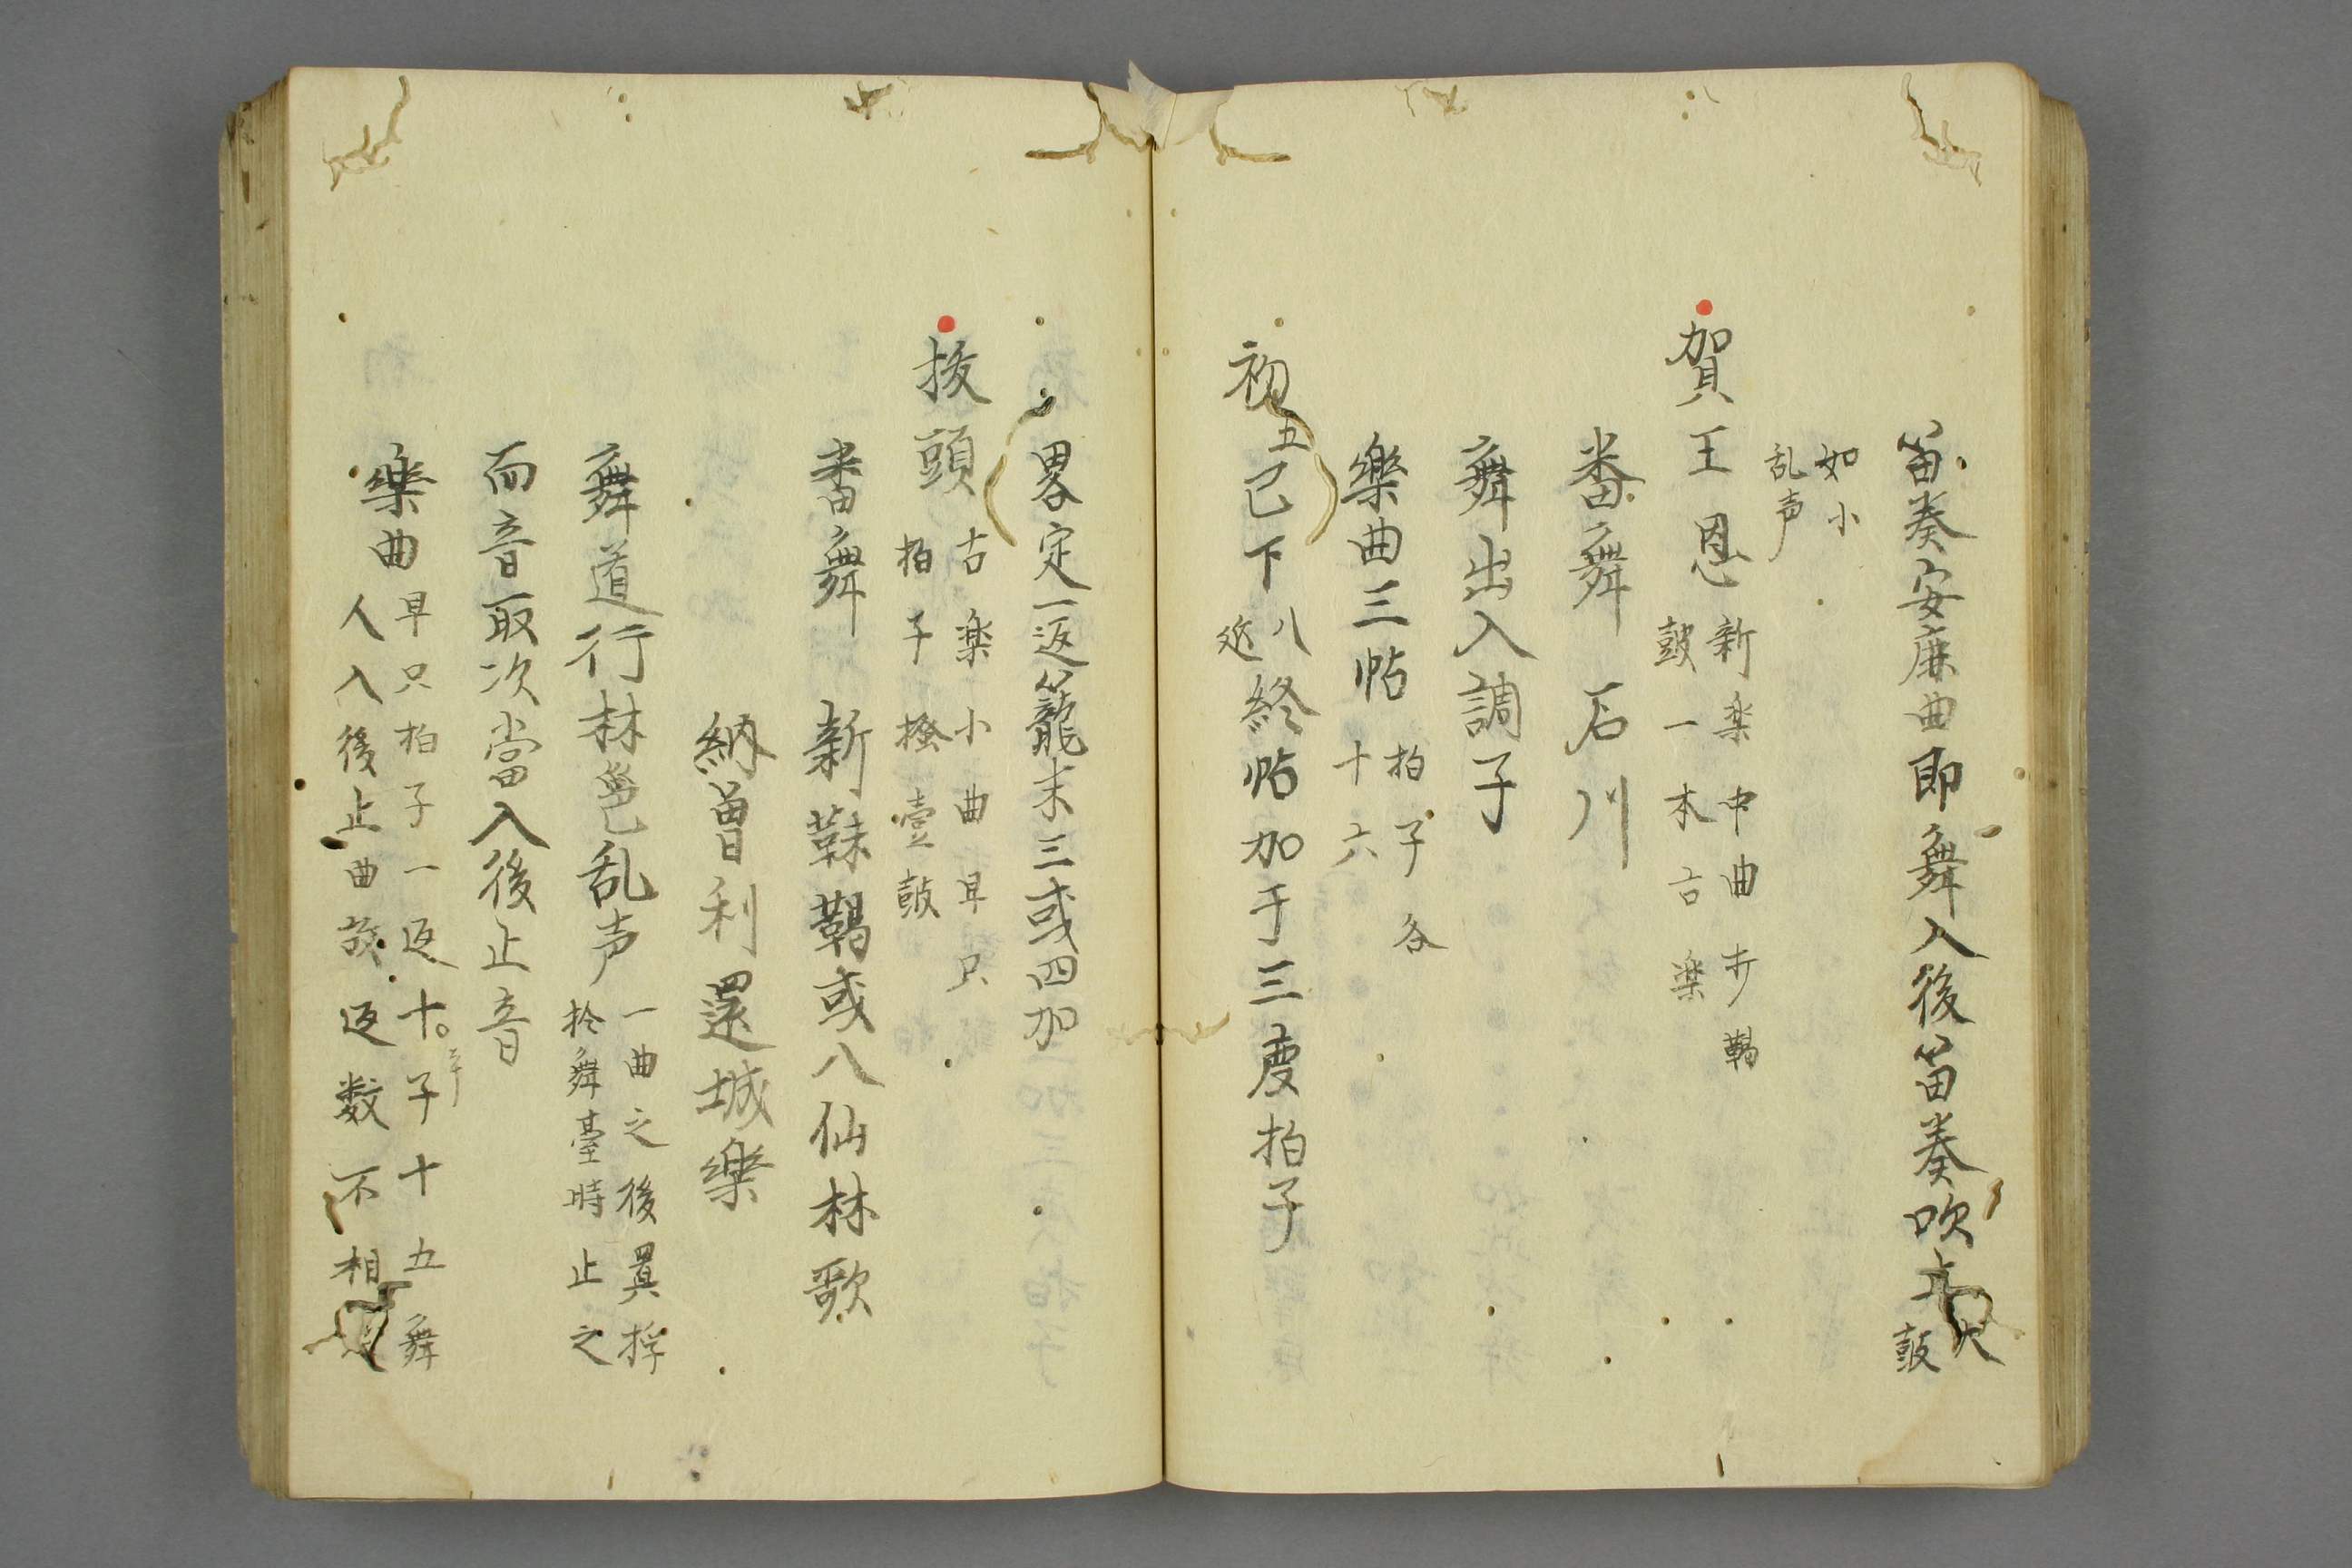 笛奏安廉曲即舞入後笛奏吹上大
鼓
如小
乱声
賀王恩新楽中曲歩鞨
鼓一本古楽
番舞 石川
舞出入調子
樂曲三帖拍子各
十六
初五已下八
返終帖加于三度拍子
畧定一返籠末三或四加
抜頭古楽小曲早只
拍子掻壹鼓
番舞 新靺鞨或八仙林歌
納曽利還城樂
舞道行林邕乱声一曲之後置桴
於舞臺時止之
而音取次當入後止音
樂曲早只拍子一返十子十五舞
人入後止曲故返数不相